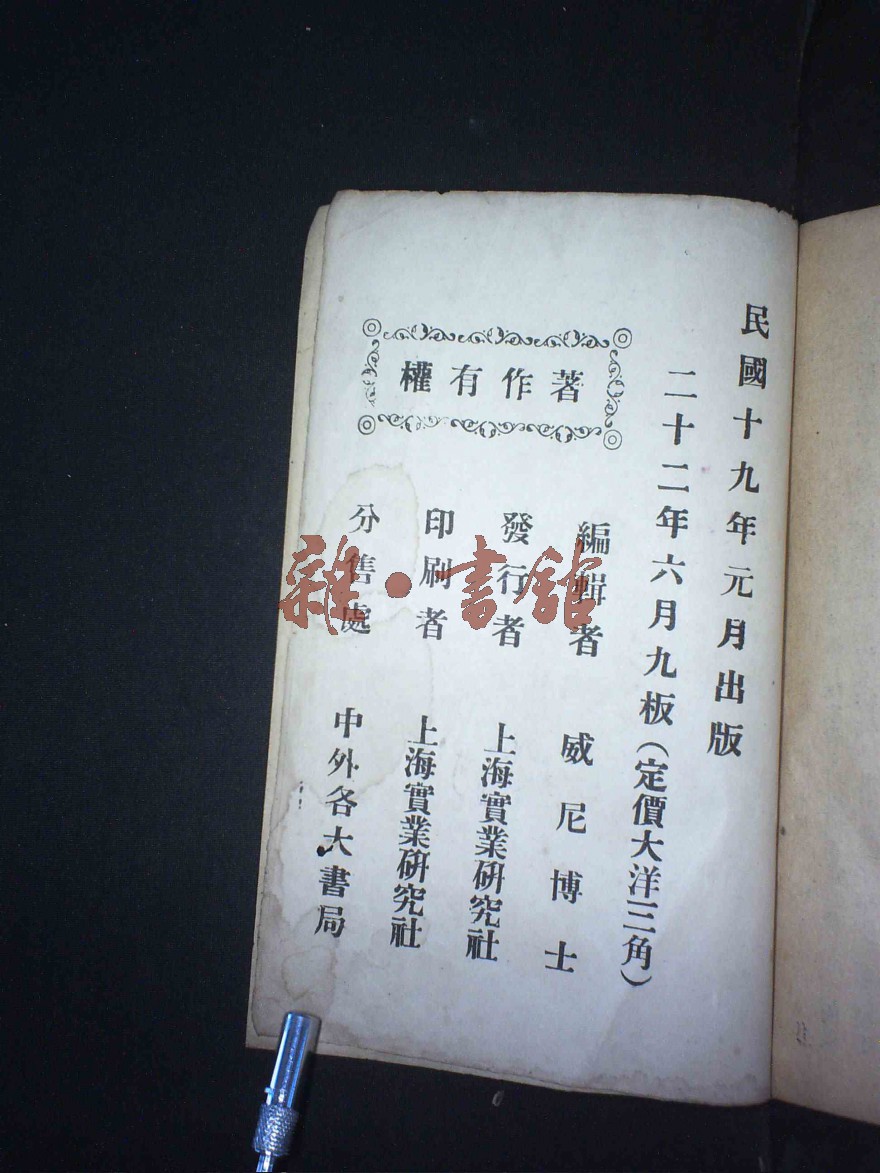 民國十九年元月出版
二十二年六月九板(定價大洋三角)
著作有權
編輯者 威尼博士
發行者 上海實業硏究社
印刷者 上海實業硏究社
分售處 中外各大書局
雜·書館